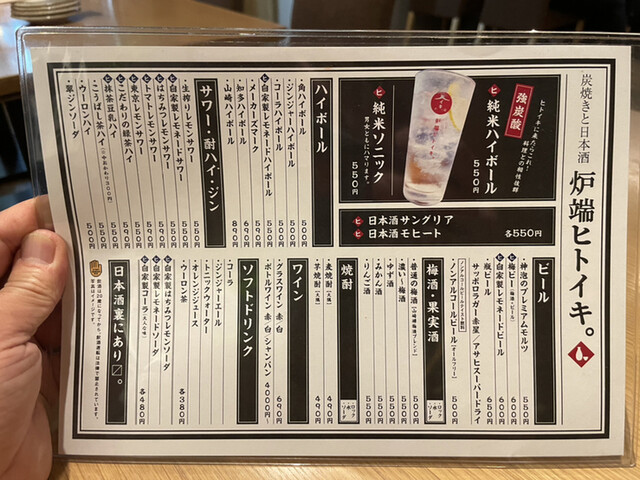 炭焼きと日本酒
炉端ヒトイキ。
ヒトイキに来たらこれ!
料理との相性抜群
強炭酸
ヒ 純米ハイボール
550円
ヒ 純米ソニック
男女ともにハマります。
550円
ヒ 日本酒サングリア
ヒ 日本酒モヒート
各550円
ハイボール
・角ハイボール
500円
・ジンジャーハイボール
500円
・コーラハイボール
500円
ヒ 自家製レモネードハイボール
550円
・メーカーズマーク
590円
・知多ハイボール
690円
・山崎ハイボール
890円
サワー・酎ハイ・ジン
・生搾りレモンサワー
550円
ヒ 自家製レモネードサワー
ヒ はちみつレモンサワー
ヒ トマトレモンサワー
ヒ 東京レモンサワー
ヒ こだわりの緑茶ハイ
ヒ 抹茶豆乳ハイ
・こうばし茶ハイ
・ウーロンハイ
500円
・翠ジンソーダ
500円
ビール
・神泡のプレミアムモルツ
550円
ヒ 梅ビー(梅酒・ビール)
ヒ 自家製レモネードビール
・瓶ビール
650円
サッポロラガー 赤星/アサヒスーパードライ
・ノンアルコールビール(オールフリー)
500円
梅酒・果実酒
ロック
水
ソーダ
・普通の梅酒
500円
・濃い〜梅酒
550円
・ゆず酒
550円
・みかん酒
550円
・りんご酒
550円
焼酎
ロック
水
ソーダ
・麦焼酎
490円
・芋焼酎
490円
ワイン
・グラスワイン 赤 白
690円
・ボトルワイン 赤/白/シャンパン
4000円〜
ソフトドリンク
・コーラ
・ジンジャーエール
・トニックウォーター
・オレンジジュース
・ウーロン茶
各380円
ヒ 自家製はちみつレモンソーダ
ヒ 自家製レモネードソーダ
ヒ 自家製コーラ(大人な味)
各480円
日本酒裏にあり〼。
飲酒は20歳になってから。飲酒運転は法律で禁止されています。
写真はイメージです。